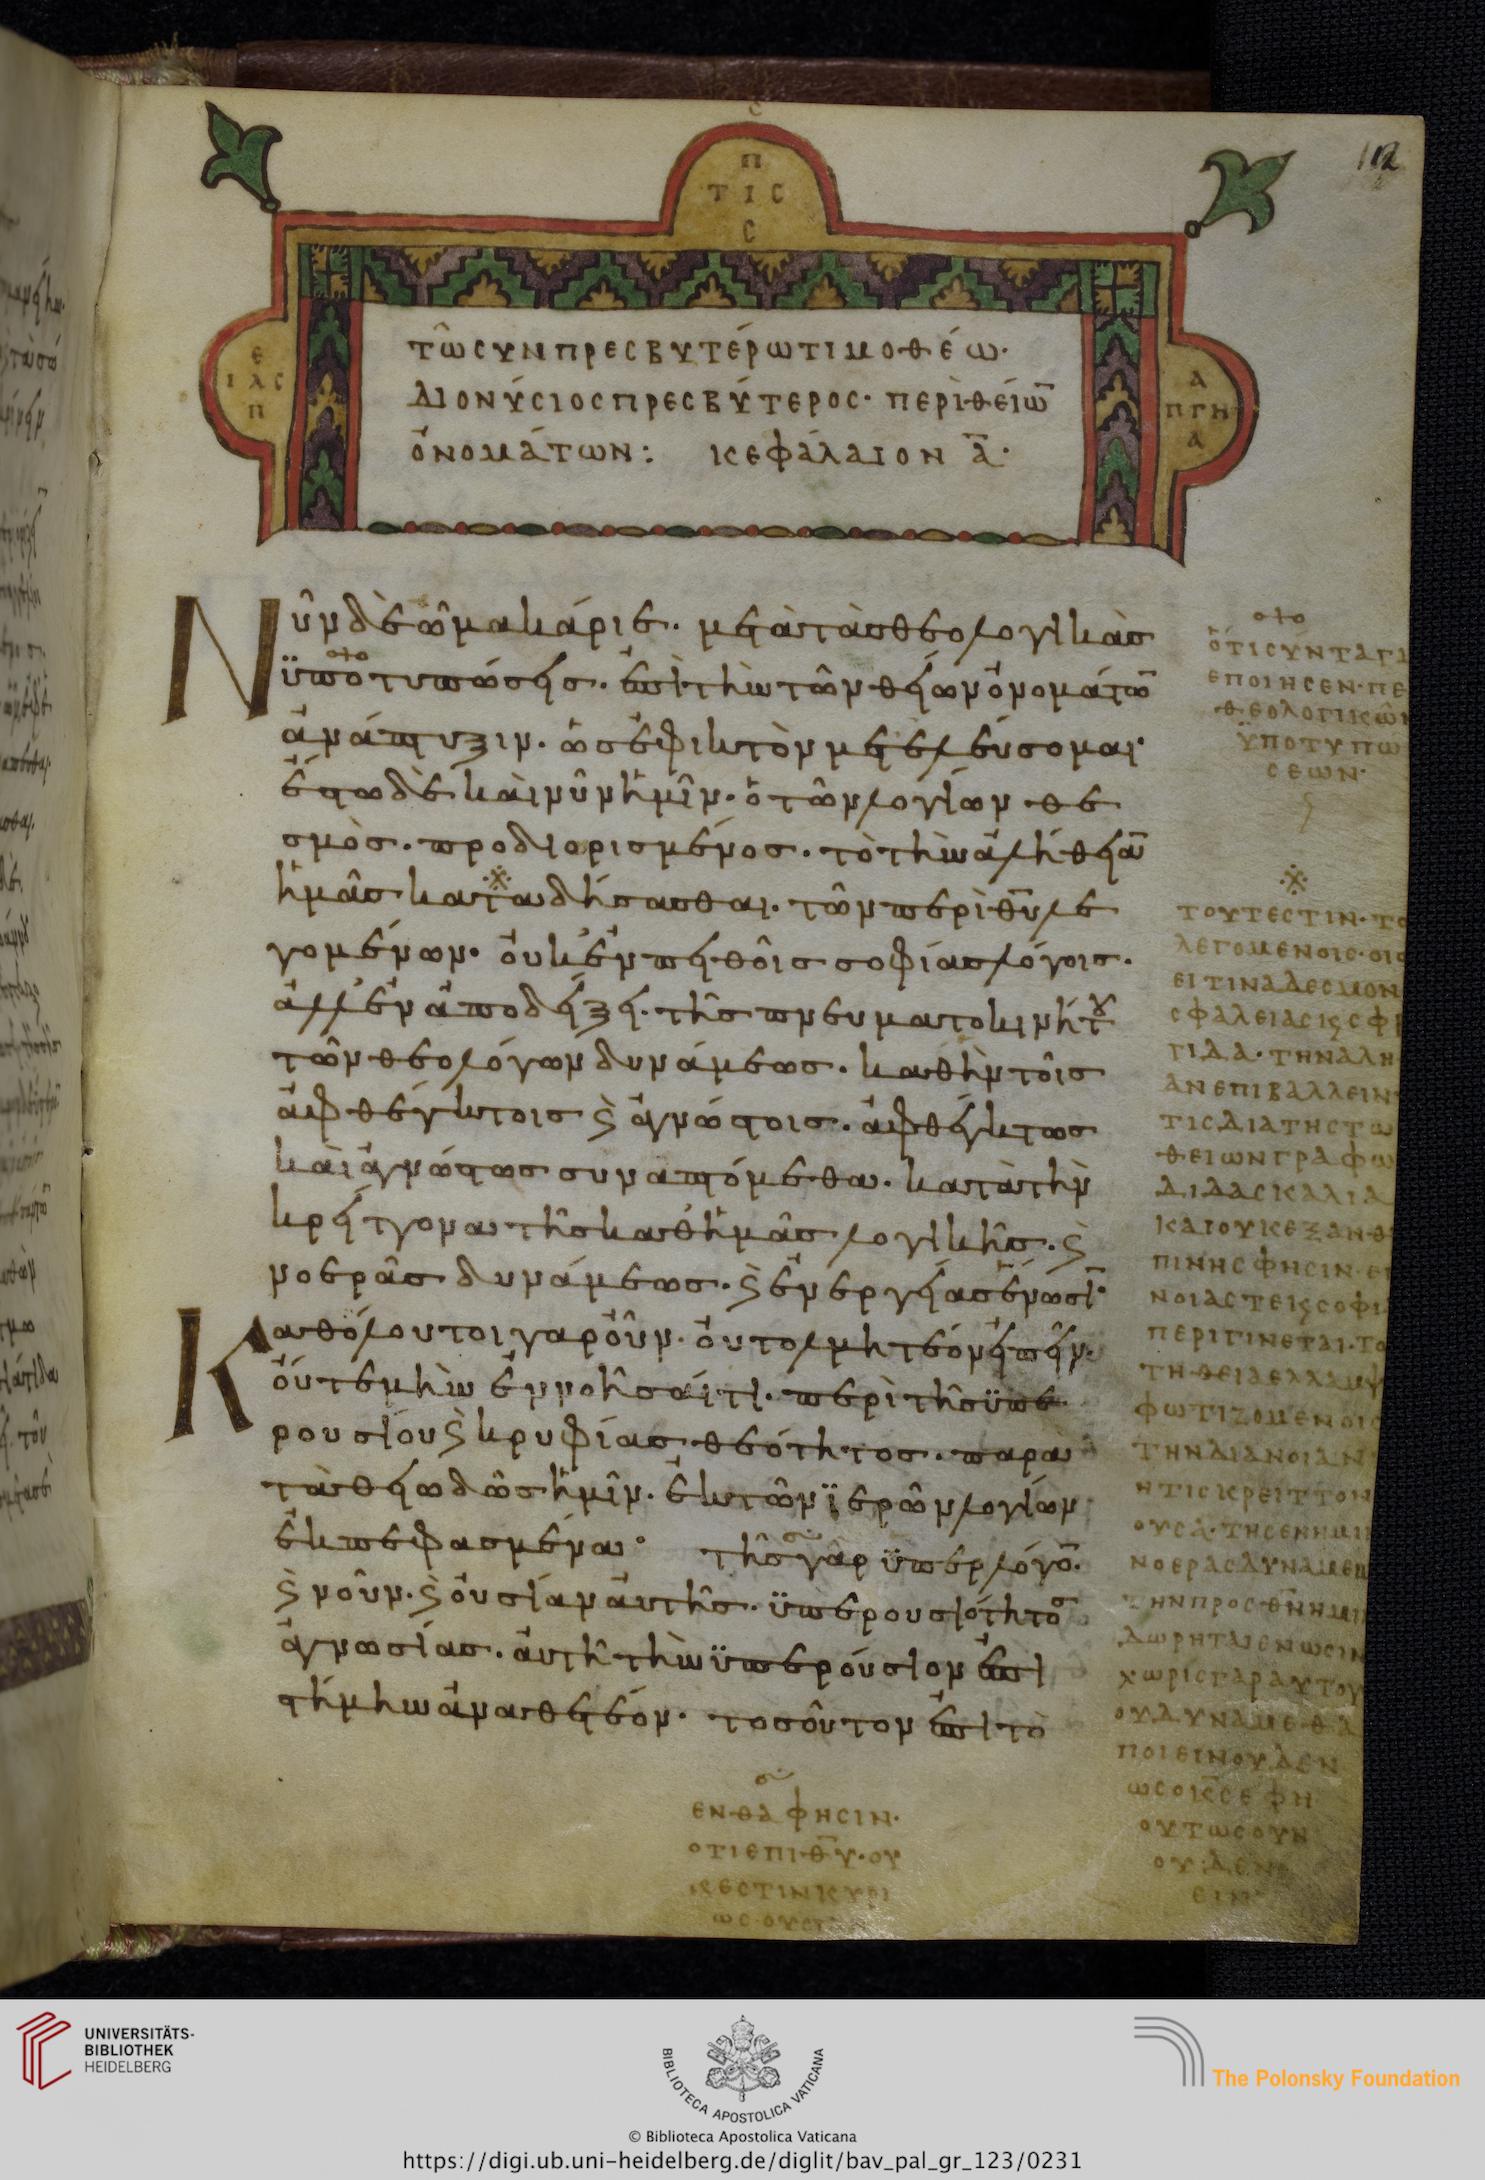 112
Π
ΤΙC
C
Ε
ΙΛC
Π
Α
ΠΓΗ
Α
τῶ συνπρεσβυτέρω τιμοθέω·
Διονύσιος πρεσβύτερος· περὶ θείω̅
ὀνομάτων: κεφάλαιον α̅·
Νῦν δὲ ὦ μακάριε· μετὰ τὰς θεολογικὰς
ϋποτυπώσεις· ἐπὶ τὴν τῶν θείων ὀνομάτω̅
ἀνάπτυξιν· ὡς ἐφικτὸν μετελεύσομαι·
ἔστω δὲ καὶ νῦν ἡμῖν· ὁ τῶν λογίων θε
σμὸς· προδιορισμένος· τὸ τὴν ἀλήθεια̅
ἡμᾶς καταδήσασθαι· τῶν περὶ θ̅υ̅ λε
γομένων· οὐκ ἐν πειθοῖς σοφίας λόγοις·
ἀλλ' ἐν ἀποδείξει· τῆς πνευματοκινήτου
τῶν θεολόγων δυνάμεως· καθ' ἣν τοῖς
ἀφθέγκτοις ϗ̀ ἀγνώστοις· ἀφθέγκτως
καὶ ἀγνώστως συναπτόμεθα· κατὰ τὴν
κρείττονα τῆς καθ' ἡμᾶς λογικῆς· ϗ̀
νοερᾶς δυνάμεως· ϗ̀ ἐνεργείας ἑνώσι̅·
Καθόλου τοιγαροῦν· οὐ τολμητέον εἰπεῖν·
οὔτε μὴν ἐννοῆσαί τι· περὶ τῆς ϋπε
ρουσίου ϗ̀ κρυφίας θεότητος· παρὰ
τὰ θειωδῶς ἡμῖν· ἐκ τῶν ϊερῶν λογίων
ἐκπεφασμένα· τῆς γὰρ ϋπὲρ λόγο̅·
ϗ̀ νοῦν· ϗ̀ οὐσίαν αὐτῆς· ϋπερουσιότητος
ἀγνωσίας· αὐτῆ τὴν ϋπερούσιον ἐπι
στήμην ἀναθετέον· τοσοῦτον ἐπὶ τὸ
ὅτι σύνταγμα
εποιησεν· πε
θεολογικῶν
ϋποτυπώ
σεων·
τουτεστιν· το
λεγομενοις· οις
ει τινα δεσμον
σφαλειας κ̣ σφρ
γιδα· την αλη
αν επιβαλλειν·
τις δια της τω
θειων γραφω
διδασκαλια
και ουκ εξ ανθ
πινης φησιν· ε
νοιας τε κ̣ σοφι
περιγινεται· το
τη θεια ελλαμψ
φωτιζομενοις
την διανοιαν·
ητις κρειττον
ουσα· της εν ημι
νοερας δυναμε
την προς θ̅ν̅ ημι
δωρηται ενωσιν
χωρις γαρ αυτου
ου δυναμεθα
ποιειν ουδεν
ως ο κ̅ς̅ εφη
ουτως ουν
ουδεν
ενθα φησιν·
οτι επι θ̅υ̅· ου
κ εστιν κυρι
ως· ουσι
UNIVERSITÄTS-
BIBLIOTHEK
HEIDELBERG
BIBLIOTECA APOSTOLICA VATICANA
The Polonsky Foundation
© Biblioteca Apostolica Vaticana
https://digi.ub.uni-heidelberg.de/diglit/bav_pal_gr_123/0231